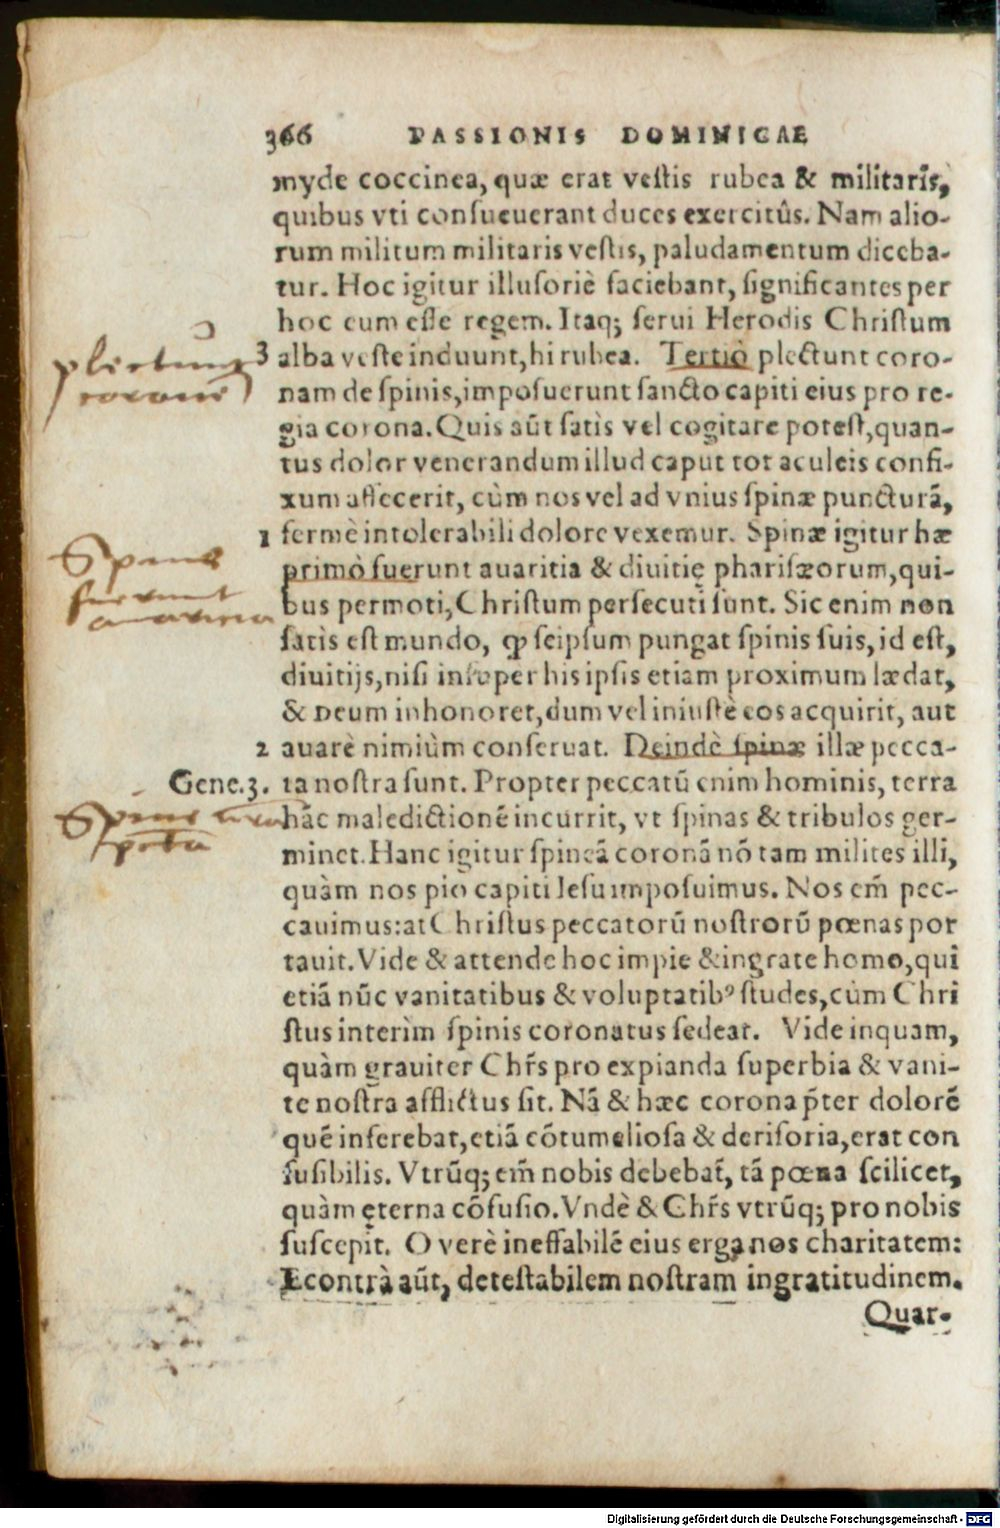 366 PASSIONIS DOMINICAE
myde coccinea, quæ erat vestis rubea & militaris,
quibus vti consueuerant duces exercitûs. Nam alio-
rum militum militaris vestis, paludamentum diceba-
tur. Hoc igitur illusoriè faciebant, significantes per
hoc eum esse regem. Itaq; serui Herodis Christum
3 alba veste induunt, hi rubea. Tertiò plectunt coro-
nam de spinis, imposuerunt sancto capiti eius pro re-
gia corona. Quis aūt satìs vel cogitare potest, quan-
tus dolor venerandum illud caput tot aculeis confi-
xum affecerit, cùm nos vel ad vnius spinæ puncturā,
1 fermè intolerabili dolore vexemur. Spinæ igitur hæ
primò fuerunt auaritia & diuitię pharisæorum, qui-
bus permoti, Christum persecuti sunt. Sic enim non
satìs est mundo, ꝙ seipsum pungat spinis suis, id est,
diuitijs, nisi insuper his ipsis etiam proximum lædat,
& Deum inhonoret, dum vel iniustè eos acquirit, aut
2 auarè nimiùm conseruat. Deindè spinæ illæ pecca-
Gene.3. ta nostra sunt. Propter peccatū enim hominis, terra
hāc maledictionē incurrit, vt spinas & tribulos ger-
minet. Hanc igitur spineā coronā nō tam milites illi,
quàm nos pio capiti Iesu imposuimus. Nos em̄ pec-
cauimus: at Christus peccatorū nostrorū pœnas por
tauit. Vide & attende hoc impie & ingrate homo, qui
etiā nūc vanitatibus & voluptatibꝰ studes, cùm Chri
stus interìm spinis coronatus sedeat. Vide inquam,
quàm grauiter Chr̄s pro expianda superbia & vani-
te nostra afflictus sit. Nā & hæc corona p̄ter dolorē
quē inferebat, etiā cōtumeliosa & derisoria, erat con
fusibilis. Vtrūq; em̄ nobis debebat̄, tā pœna scilicet,
quàm ęterna cōfusio. Vndè & Chr̄s vtrūq; pro nobis
suscepit. O verè ineffabilē eius erga nos charitatem:
Econtrà aūt, detestabilem nostram ingratitudinem.
Quar-
plectunt
coronã
Spine
fuerunt
avaritia
Spine